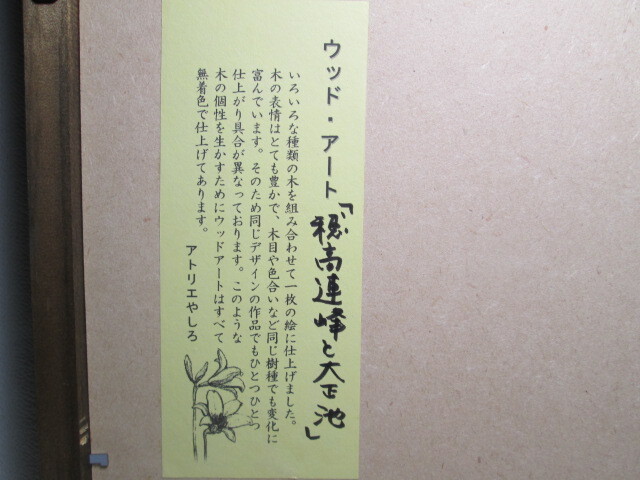 ウッド・アート「穂高連峰と大正池」
いろいろな種類の木を組み合わせて一枚の絵に仕上げました。
木の表情はとても豊かで、木目や色合いなど同じ樹種でも変化に
富んでいます。そのため同じデザインの作品でもひとつひとつ
仕上がり具合が異なっております。このような
木の個性を生かすためにウッドアートはすべて
無着色で仕上げてあります。
アトリエやしろ